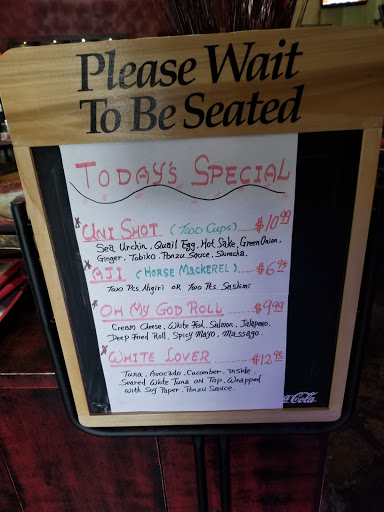 Please Wait
To Be Seated
TODAY'S SPECIAL
* UNI SHOT (TWO CUPS).....$10.99
Sea Urchin, Quail Egg, Hot Sake, Green Onion,
Ginger, Tobiko, Ponzu Sauce, Siracha.
* AJI (HORSE MACKEREL).....$6.95
Two Pcs Nigiri OR Two Pcs. Sashimi
* OH MY GOD ROLL.....$9.99
Cream Cheese, White Fish, Salmon, Jalapeno.
Deep Fried Roll, Spicy Mayo, Massago.
* WHITE LOVER.....$12.95
Tuna, Avocado, Cucumber, Inside.
Seared White Tuna on Top, Wrapped
with Soy Paper, Ponzu Sauce.
Cola